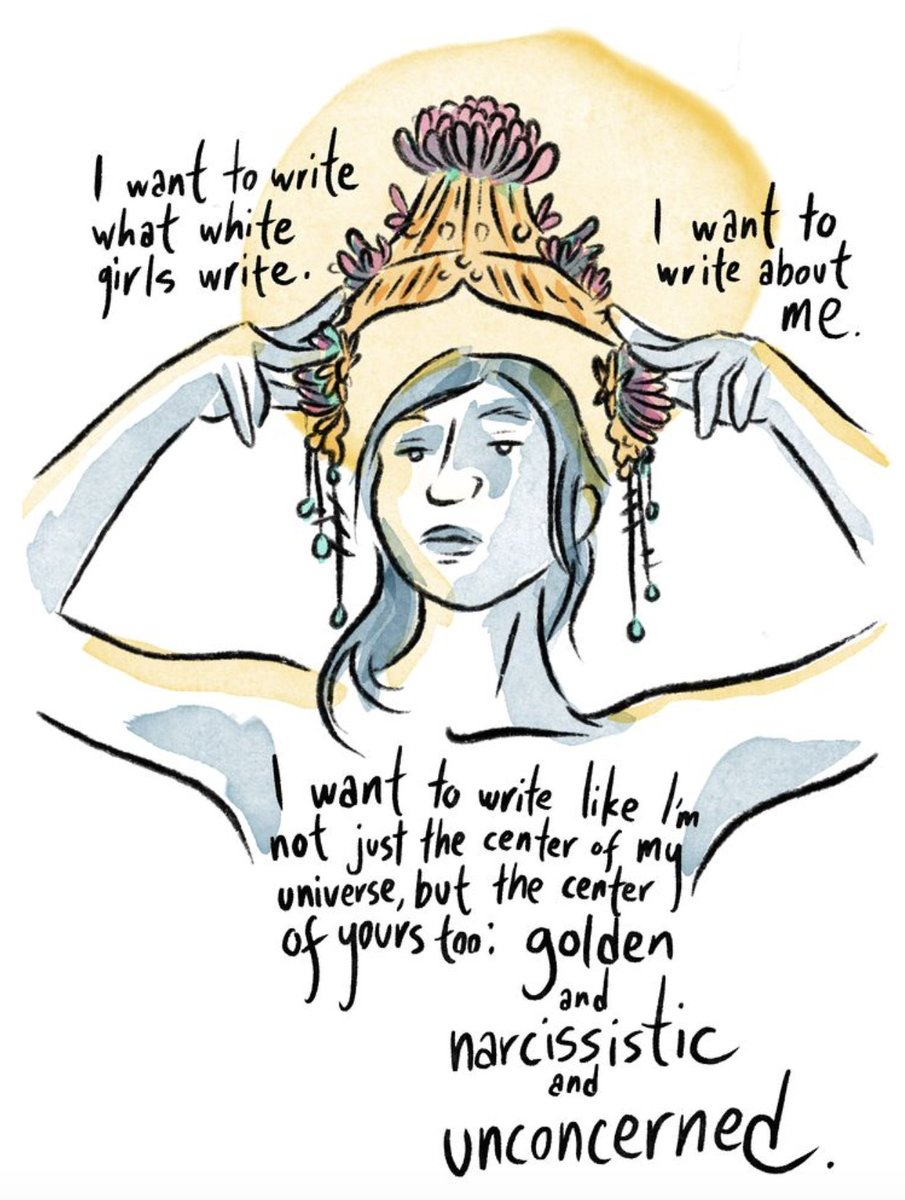 I want to write
what white
girls write.
I want to
write about
me.
I want to write like I'm
not just the center of my
universe, but the center
of yours too: golden
and
narcissistic
and
unconcerned.